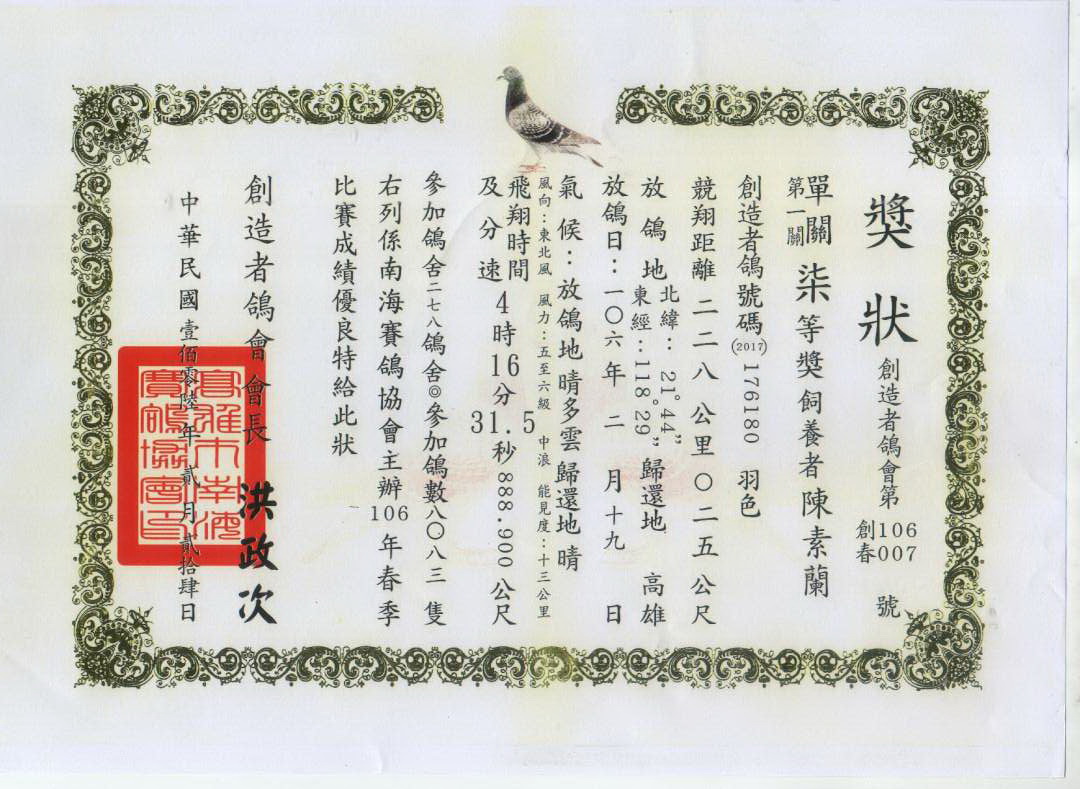 獎狀 創造者鴿會第 106創春007 號
單關第一關 柒等獎飼養者陳素蘭
創造者鴿號碼(2017) 176180 羽色
競翔距離 二二八公里 〇二五公尺
放鴿地 北緯：21°44" 東經：118°29" 歸還地 高雄
放鴿日：一〇六年二月十九日
氣候：放鴿地晴多雲歸還地晴
風向：東北風 風力：五至六級 中浪 能見度：十三公里
飛翔時間及分速 4時16分31.5秒 888.900公尺
參加鴿舍二七八鴿舍◎參加鴿數八〇八三隻
右列係南海賽鴿協會主辦106年春季
比賽成績優良特給此狀
創造者鴿會會長 洪政次
中華民國壹佰零陸年貳月貳拾肆日
高雄市南海賽鴿協會印